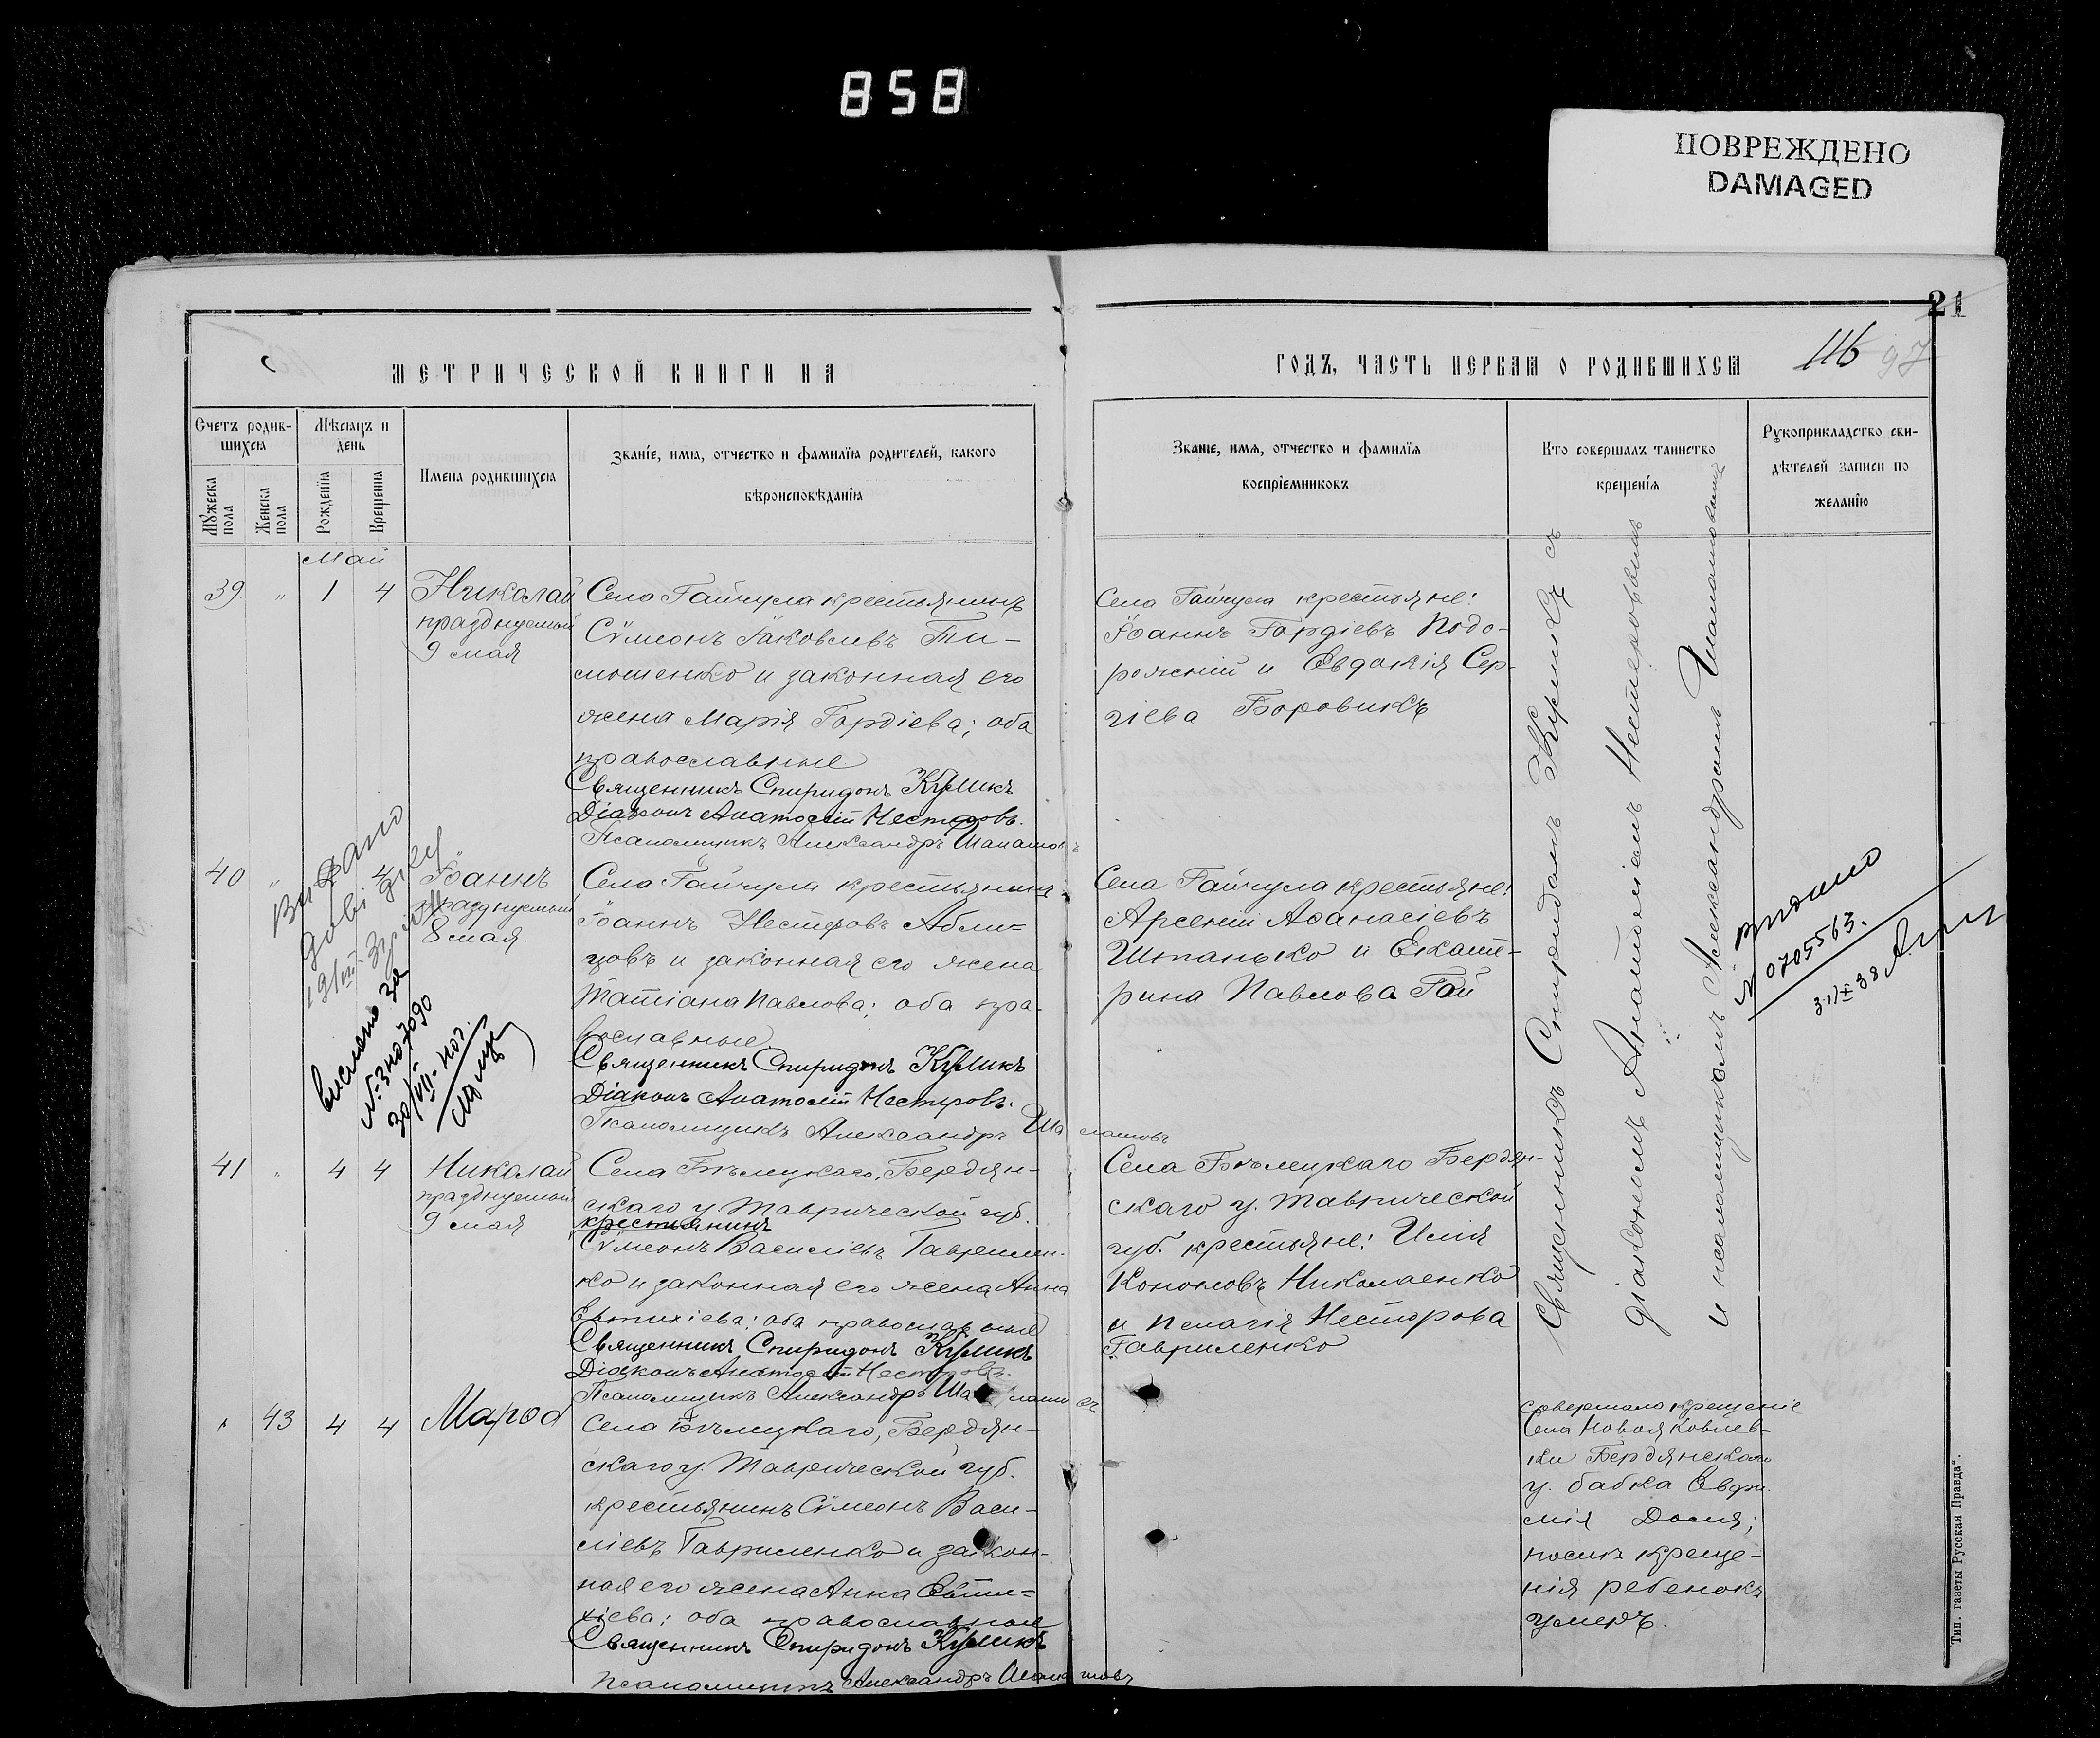 858
ПОВРЕЖДЕНО
DAMAGED
21
МЕТРИЧЕСКОЙ КНИГИ НА
ГОДЪ, ЧАСТЬ ПЕРВАЯ О РОДИВШИХСЯ
116 97
Счетъ родившихся
Мужеска пола
Женска пола
Мѣсяцъ и день
Рожденїя
Крещенїя
Имена родившихся
Званїе, имя, отчество и фамилїя родителей, какого
вѣроисповѣданїя
Званїе, имя, отчество и фамилїя
воспрїемниковъ
Кто совершалъ таинство
крещенїя
Рукоприкладство сви-
дѣтелей записи по
желанїю
Май
39 " 1 4
Николай
празднуемый
9 мая
Села Гайчула крестьянинъ
Сѵмеонъ Іаковлевъ Ти-
мошенко и законная его
жена Марія Гордіева; оба
православные
Священникъ Спиридонъ Куликъ
Діаконъ Анатолій Нестеровъ.
Псаломщикъ Александръ
Села Гайчула крестьяне:
Іоаннъ Гордіевъ Подо-
рожній и Евдокія Сер-
гіева Боровикъ
40 " 4
Іоаннъ
празднуемый
8 мая.
Села Гайчула крестьянинъ
Іоаннъ Нестеровъ Абли-
цовъ и законная его жена
Татіана Павлова; оба пра-
вославные
Священникъ Спиридонъ Куликъ
Діаконъ Анатолій Нестеровъ.
Псаломщикъ Александръ
Села Гайчула крестьяне:
Арсеній Аѳанасіевъ
Штанько и Екате-
рина Павлова Гай
Видано
0705563.
31/X 38
41 " 4 4
Николай
празднуемый
9 мая
Села Бѣлицкаго, Бердян-
скаго у. Таврической губ.
крестьянинъ
Сѵмеонъ Василіевъ Гаврилен-
ко и законная его жена Анна
Евтихіева; оба православные
Священникъ Спиридонъ Куликъ
Діаконъ Анатолій Нестеровъ.
Псаломщикъ Александръ
Села Бѣлицкаго Бердян-
скаго у. Таврической
губ. крестьяне: Илія
Кононовъ Николаенко
и Пелагія Несторова
Гавриленко
Священникъ Спиридонъ Куликъ съ
діакономъ Анатоліемъ Нестеровымъ
и псаломщикомъ Александромъ
43 4 4
Марѳа
Села Бѣлицкаго, Бердян-
скаго у. Таврической губ.
крестьянинъ Сѵмеонъ Васи-
ліевъ Гавриленко и закон-
ная его жена Анна Евти-
хіева; оба православные
Священникъ Спиридонъ Куликъ
Псаломщикъ Александръ
совершала крещеніе
Бердянскаго
у. бабка Евфи-
мія
послѣ креще-
нія ребенокъ
умеръ.
Тип. газеты „Русская Правда“.